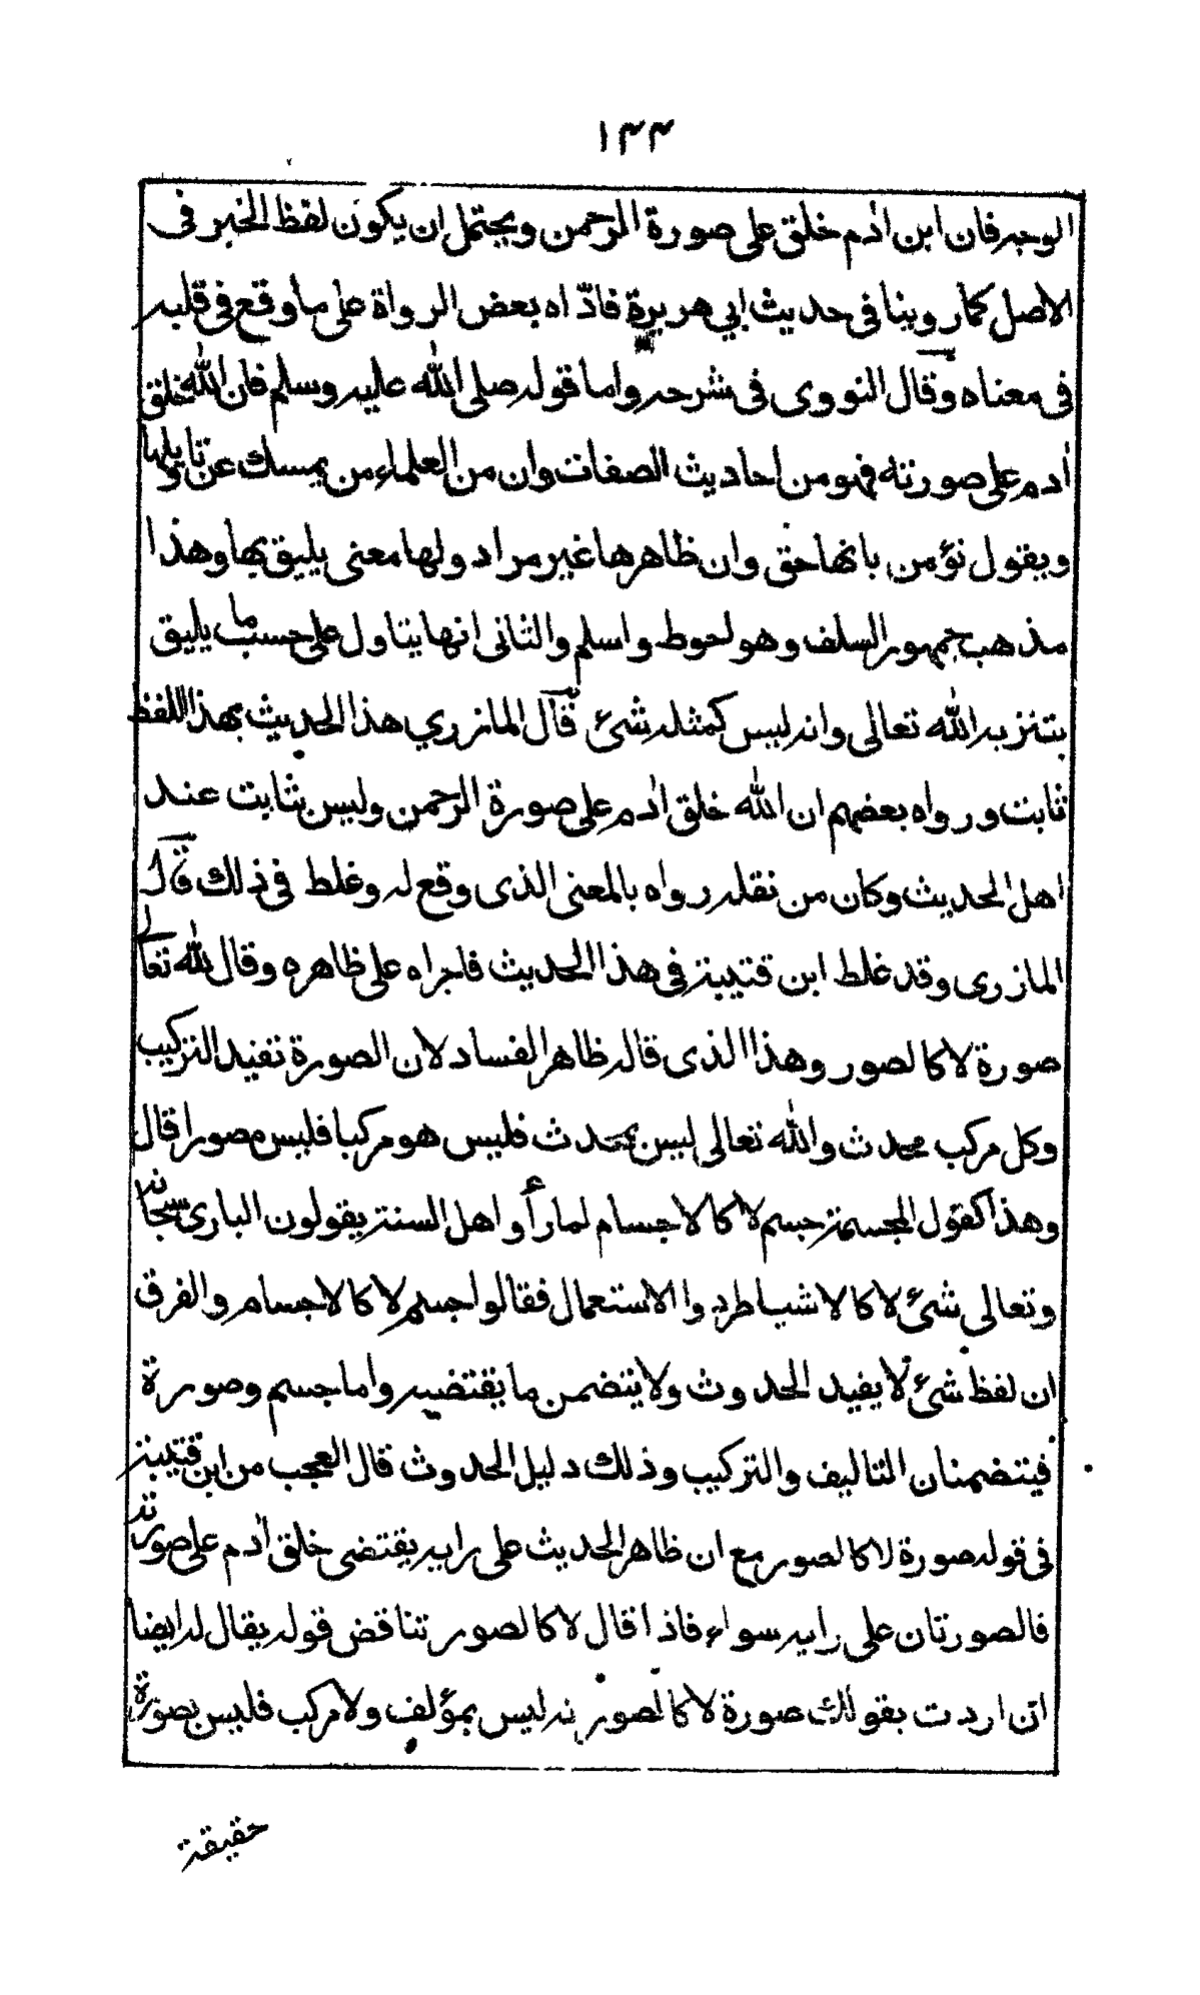 ١٣٣
الوجه فان ابن اٰدم خلق على صورة الرحمن ويحتمل ان يكون لفظ الخبر فى
الاصل كما روينا فى حديث ابي هريرة فادّاه بعض الرواة على ما وقع فى قلبه
فى معناه وقال النووى فى شرحه واما قوله صلى الله عليه وسلم فان الله خلق
اٰدم على صورته فهو من احاديث الصفات وان من العلماء من يمسك عن تاويلها
ويقول نؤمن بانها حق وان ظاهرها غير مراد ولها معنى يليق بها وهذا
مذهب جمهور السلف وهو احوط واسلم والثانى انها يتاول على حسب ما يليق
بتنزيه الله تعالى وانه ليس كمثله شئ قال المازري هذا الحديث بهذا اللفظ
ثابت ورواه بعضهم ان الله خلق اٰدم على صورة الرحمن وليس بثابت عند
اهل الحديث وكان من نقله رواه بالمعنى الذى وقع له وغلط فى ذلك قال
المازرى وقد غلط ابن قتيبة فى هذا الحديث فاجراه على ظاهره وقال لله تعالى
صورة لا كالصور وهذا الذى قاله ظاهر الفساد لان الصورة تفيد التركيب
وكل مركب محدث والله تعالى ليس بمحدث فليس هو مركبا فليس مصورا قال
وهذا كقول المجسمة جسم لا كالاجسام لما رأوا اهل السنة يقولون البارى سبحانه
وتعالى شئ لا كالاشياء طردوا الاستعمال فقالوا جسم لا كالاجسام والفرق
ان لفظ شئ لا يفيد الحدوث ولا يتضمن ما يقتضيه واما جسم وصورة
فيتضمنان التاليف والتركيب وذلك دليل الحدوث قال العجب من ابن قتيبة
فى قوله صورة لا كالصور مع ان ظاهر الحديث على رايه يقتضى خلق اٰدم على صورته
فالصورتان على رايه سواء فاذا قال لا كالصور تناقض قوله يقال له ايضا
ان اردت بقولك صورة لا كالصور انه ليس بمؤلف ولا مركب فليس بصورة
حقيقة